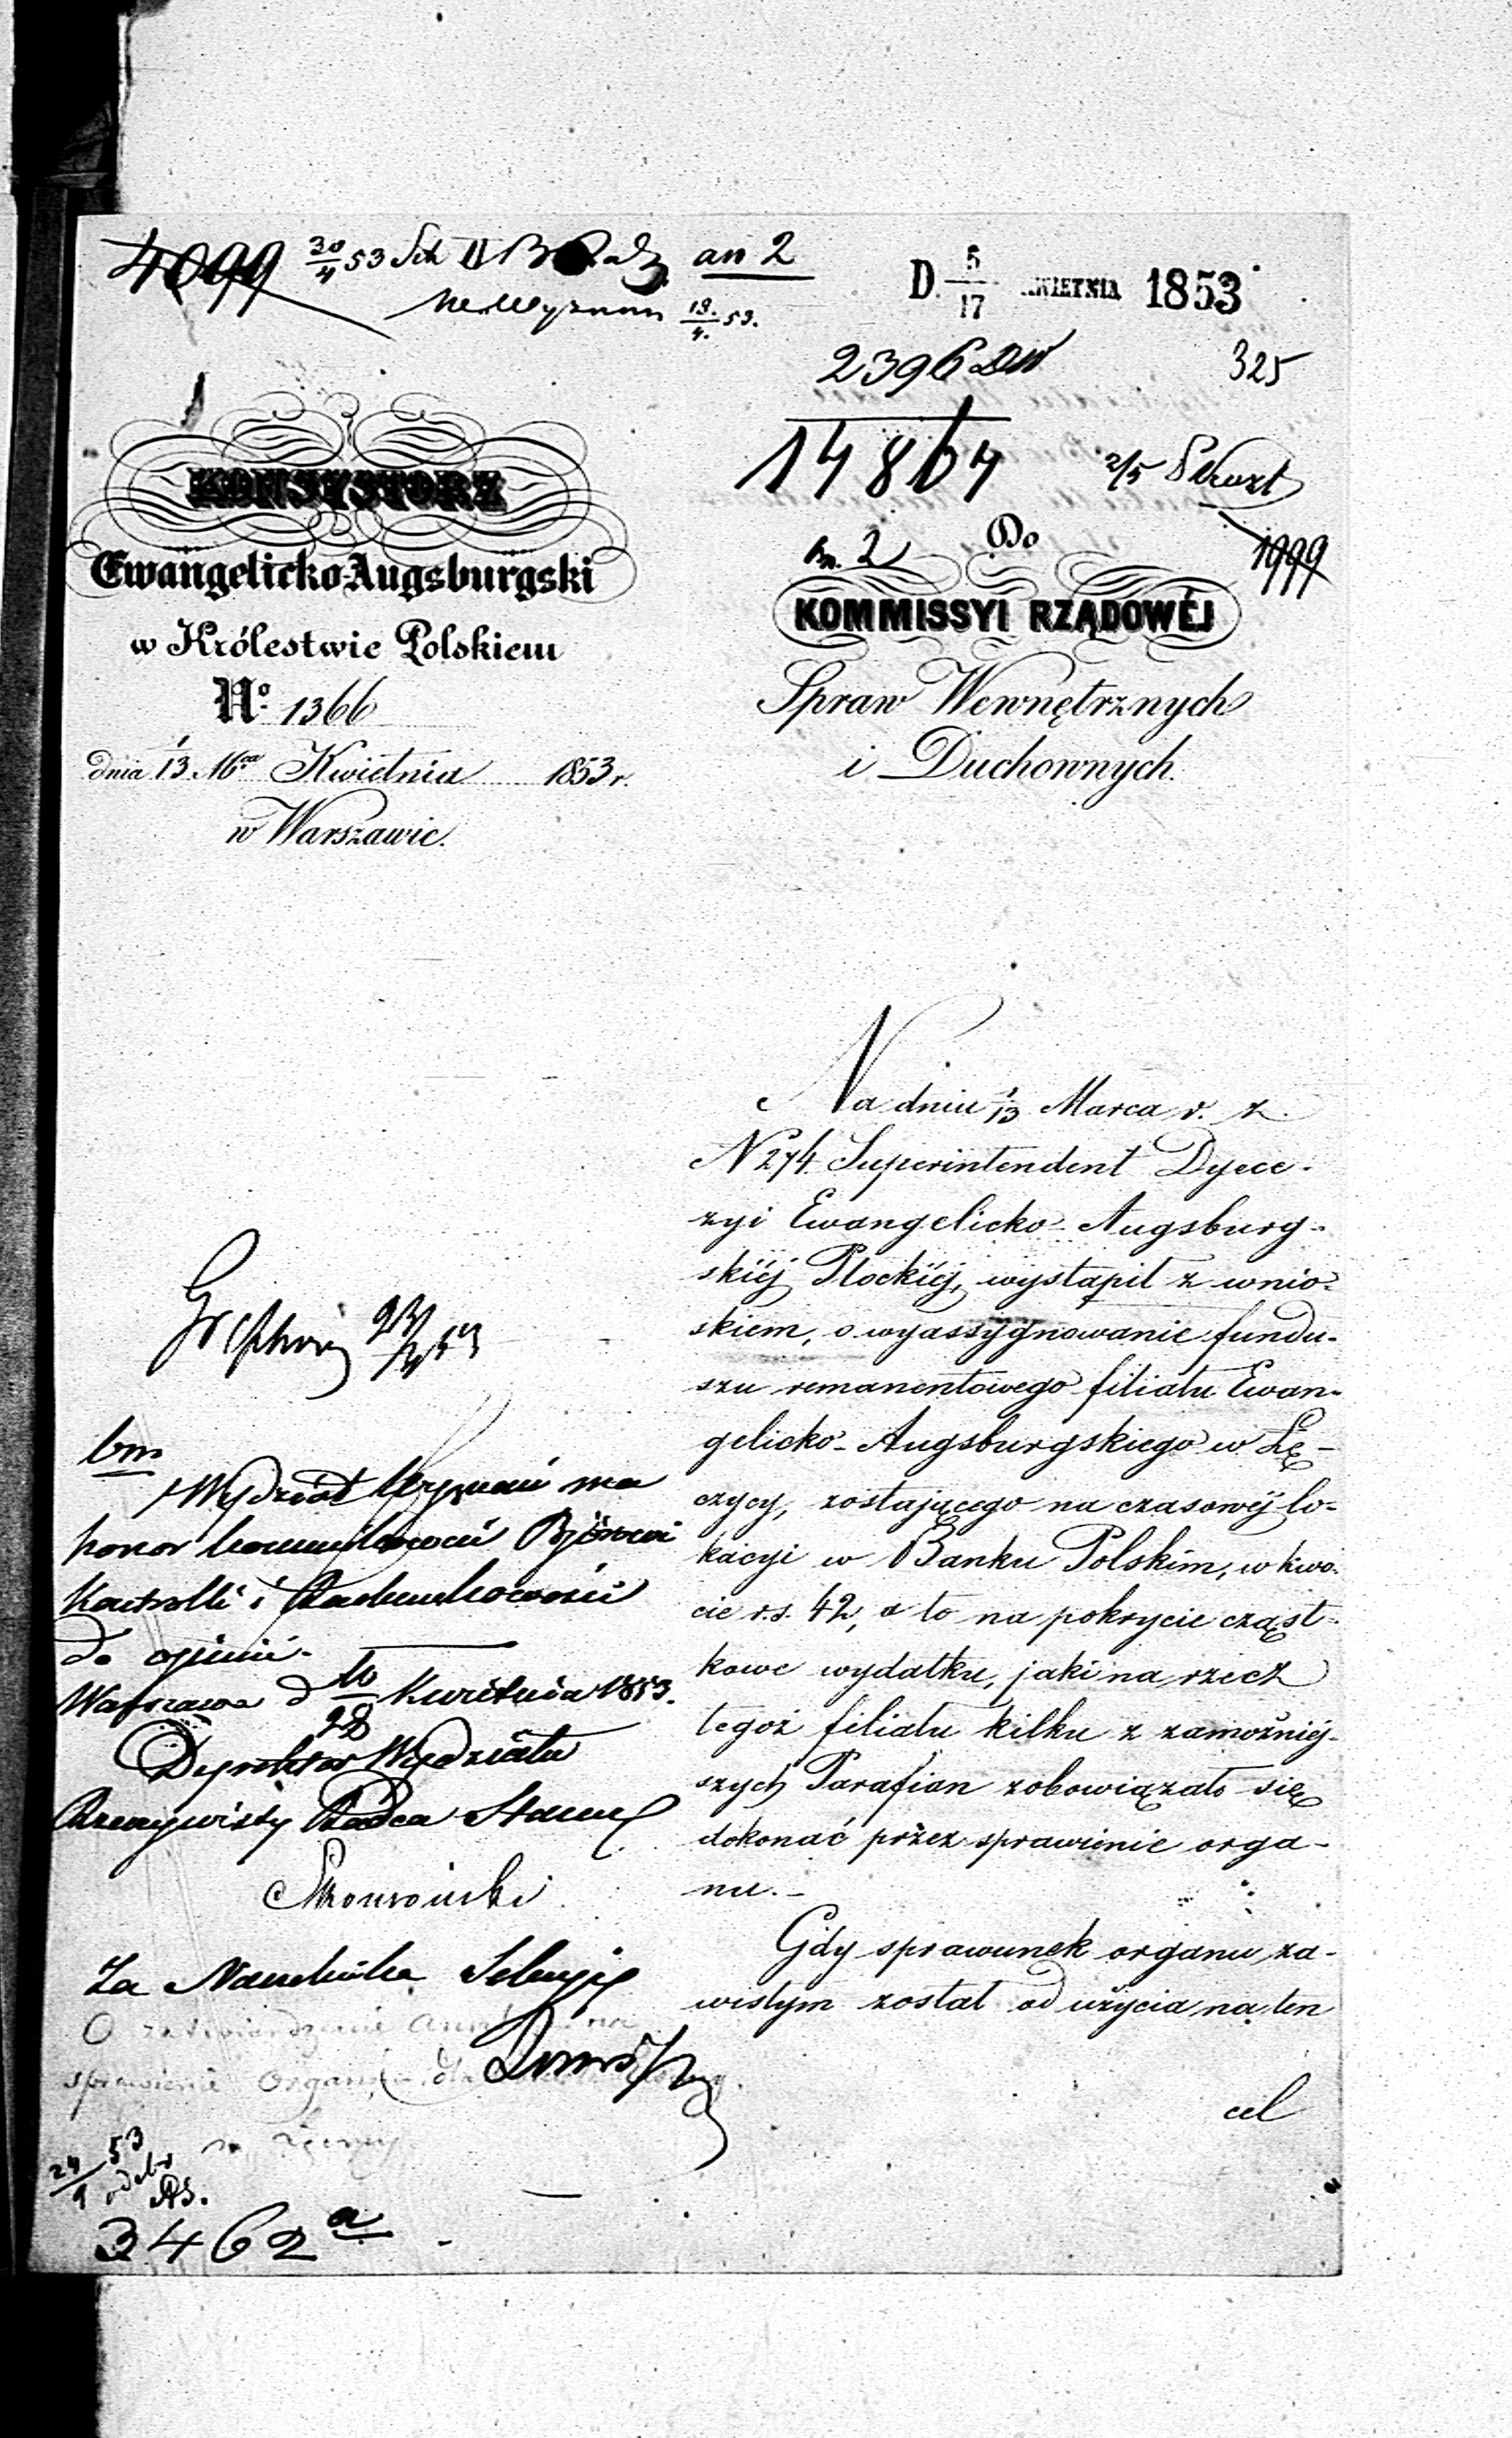 4099 30/4 53
an 2
19./4. 53.
D. 5/17 KWIETNIA 1853
2396 DW
325
14864
2/5
1999
KONSYSTORZ
Ewangelicko-Augsburgski
w Królestwie Polskiem
Nº 1366
dnia 1/13 Kwietnia 1853 r.
w Warszawie.
bn. 2
Do
KOMMISSYI RZĄDOWÉJ
Spraw Wewnętrznych
i Duchownych.
Na dniu 1/13 Marca r. z.
N 274. Superintendent Dyece-
zyi Ewangelicko-Augsburg-
skiéj Płockiéj, wystąpił z wnio-
skiem, o wyassygnowanie fundu-
szu remanentowego filiału Ewan-
gelicko-Augsburgskiego w Łę-
czycy, zostającego na czasowéj lo-
kacyi w Banku Polskim, w kwo-
cie r.s. 42, a to na pokrycie cząst-
kowe wydatku, jaki na rzecz
tegoż filiału kilku z zamożniéj-
szych Parafian zobowiązało się
dokonać przez sprawienie orga-
nu.-
Gdy sprawunek organu, za-
wisłym został od użycia na ten
cel
23/4 53
bm
Wydział Wyznań ma
honor Kommunikować Biórowi
Kontrolli i Rachunkowości
do opinii.
Warszawa d 10/22 Kwietnia 1853.
Dyrektor Wydziału
Rzeczywisty Radca Stanu
Za Naczelnika Sekcyi
O zatwierdzenie
sprawienie Organu dla
w Łęczycy
24/4 53
3462 a